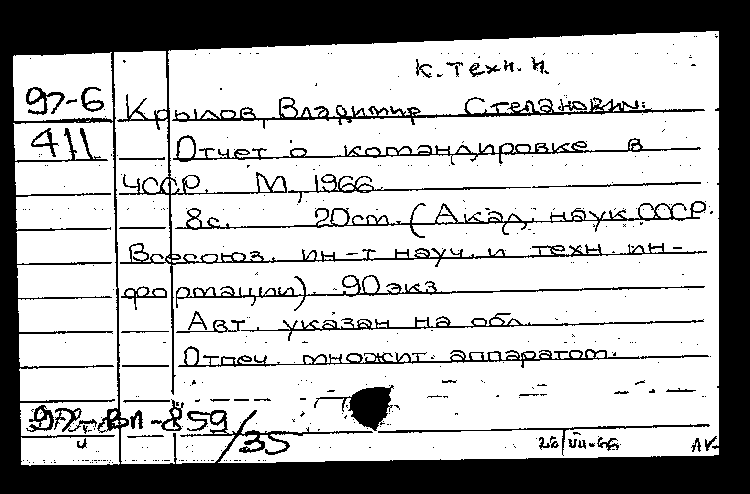 к.техн.н.
97-6 Крылов, Владимир Степанович.
411 Отчет о командировке в
ЧССР. М., 1966
8с. 20ст. (Акад. наук СССР.
Всесоюз. ин-т науч. и техн. ин-
формации). 90 экз
Авт. указан на обл.
Отпеч. множит. аппаратом.
ВЛ-859/35